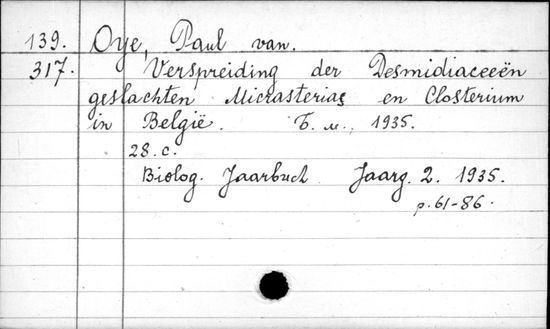 139. Oye, Paul van.
317. Verspreiding der Desmidiaceeën
geslachten Micrasterias en Closterium
in België. Б. м., 1935.
28. с.
Biolog. Jaarbuch Jaarg. 2. 1935.
p. 61-86.